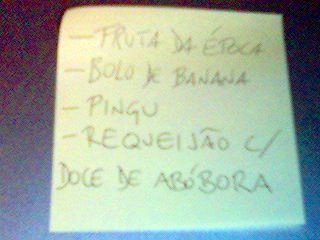 - FRUTA DA ÉPOCA
- BOLO DE BANANA
- PINGU
- REQUEIJÃO C/
DOCE DE ABÓBORA